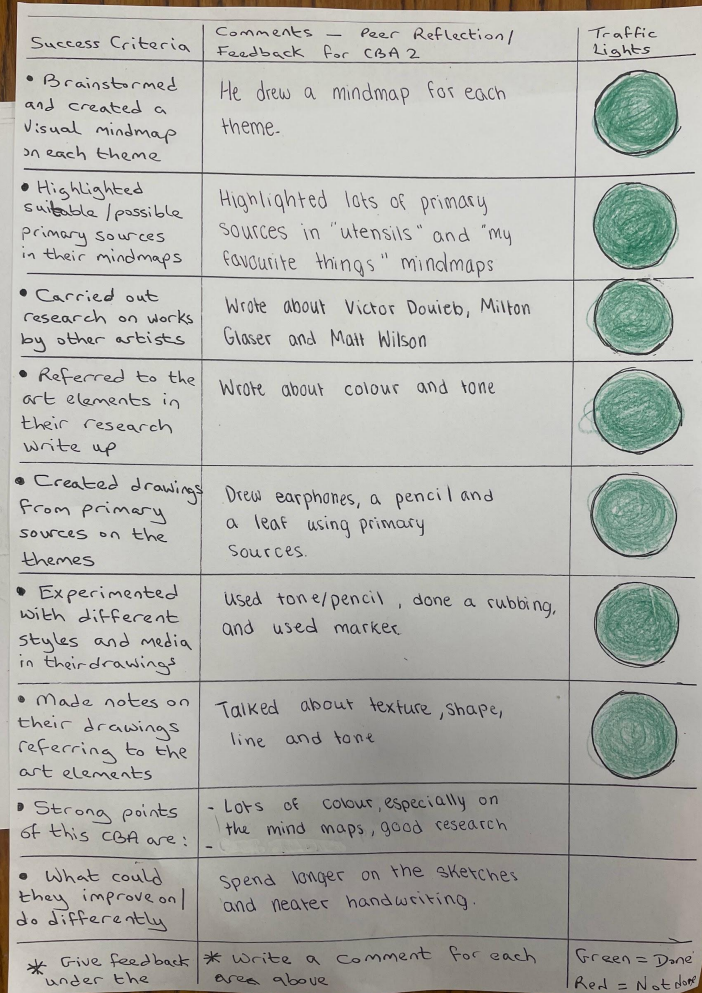 Success Criteria
Comments — Peer Reflection/
Feedback for CBA 2
Traffic
Lights
• Brainstormed
and created a
visual mindmap
on each theme
He drew a mindmap for each
theme.
• Highlighted
suitable/possible
primary sources
in their mindmaps
Highlighted lots of primary
sources in "utensils" and "my
favourite things" mindmaps
• Carried out
research on works
by other artists
Wrote about Victor Douieb, Milton
Glaser and Matt Wilson
• Referred to the
art elements in
their research
write up
Wrote about colour and tone
• Created drawings
from primary
sources on the
themes
Drew earphones, a pencil and
a leaf using primary
sources.
• Experimented
with different
styles and media
in their drawings
used tone/pencil, done a rubbing,
and used marker
• Made notes on
their drawings
referring to the
art elements
Talked about texture, shape,
line and tone
• Strong points
of this CBA are:
- Lots of colour, especially on
the mind maps, good research
-
• What could
they improve on/
do differently
Spend longer on the sketches
and neater handwriting.
* Give feedback
under the
* Write a comment for each
area above
Green = Done
Red = Not done